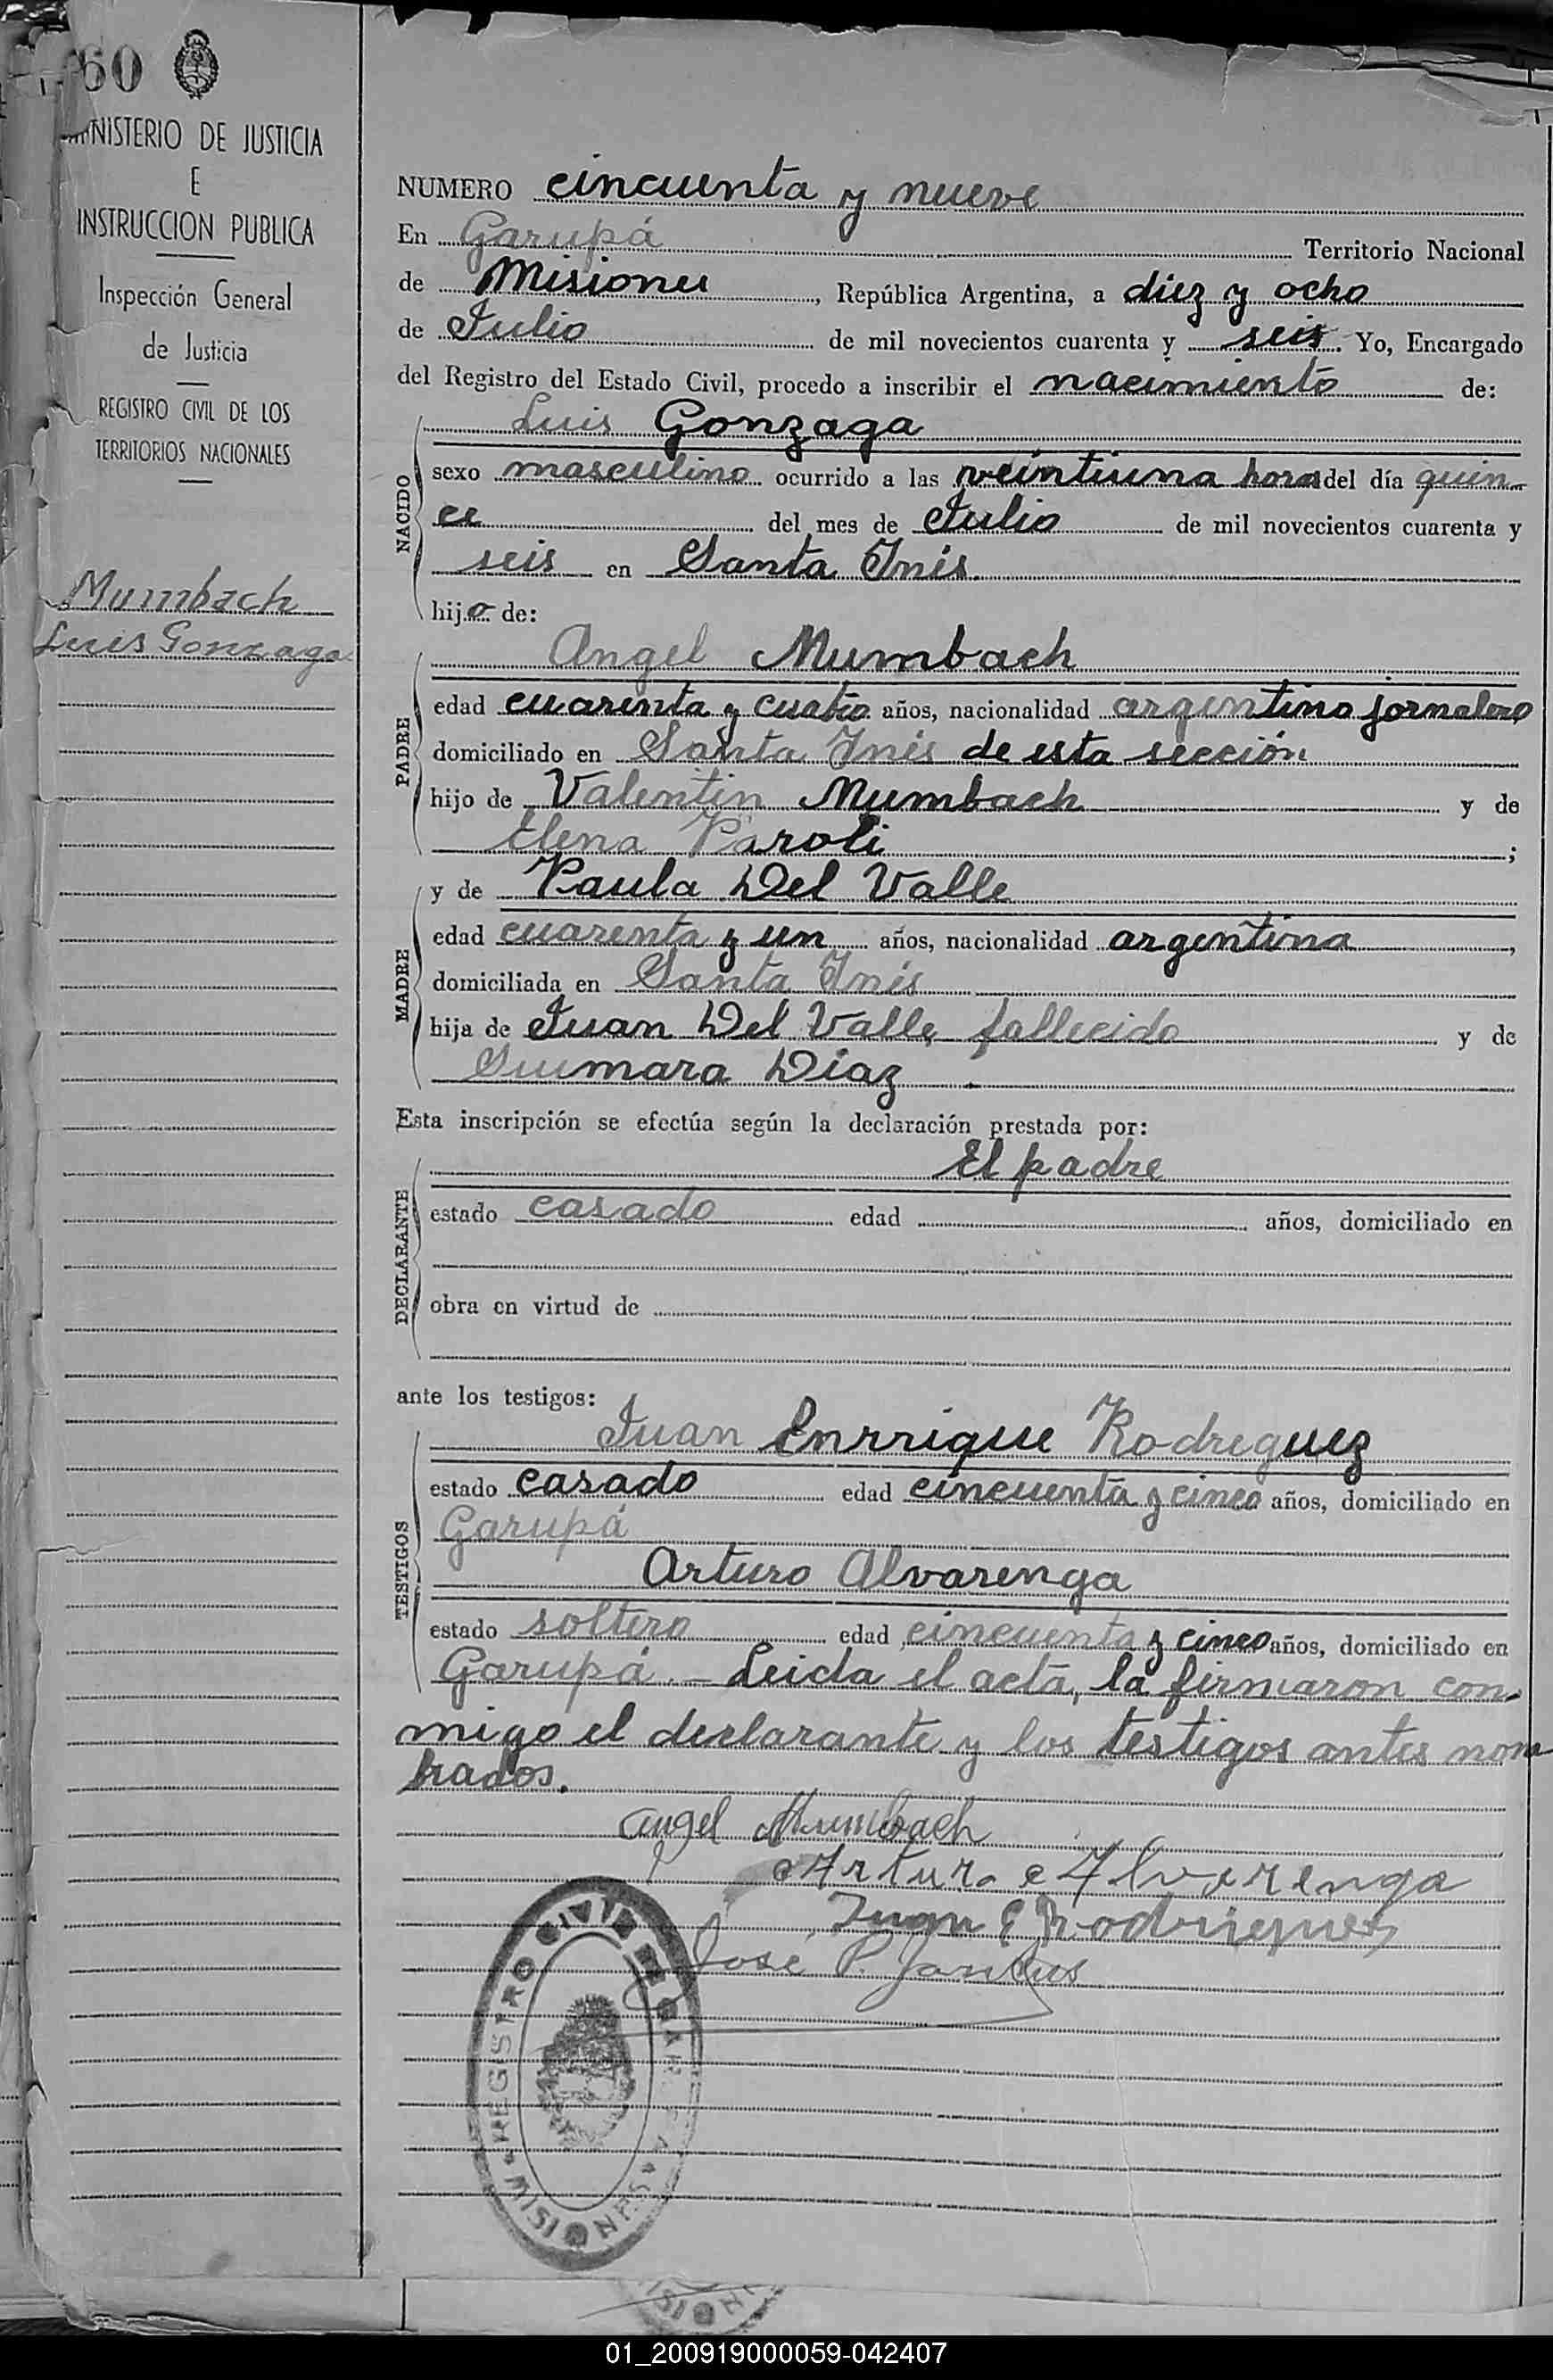 60
MINISTERIO DE JUSTICIA
E
INSTRUCCION PUBLICA
Inspección General
de Justicia
REGISTRO CIVIL DE LOS
TERRITORIOS NACIONALES
Mumbach
Luis Gonzaga
NUMERO cincuenta y nueve
En Garupá Territorio Nacional
de Misiones, República Argentina, a diez y ocho
de Julio de mil novecientos cuarenta y seis. Yo, Encargado
del Registro del Estado Civil, procedo a inscribir el nacimiento de:
NACIDO
Luis Gonzaga
sexo masculino ocurrido a las veintiuna horas del día quin-
ce del mes de Julio de mil novecientos cuarenta y
seis en Santa Inés
hijo de:
PADRE
Angel Mumbach
edad cuarenta y cuatro años, nacionalidad argentino jornalero
domiciliado en Santa Inés de esta sección
hijo de Valentin Mumbach y de
Elena Paroli ;
MADRE
y de Paula Del Valle
edad cuarenta y un años, nacionalidad argentina,
domiciliada en Santa Inés
hija de Juan Del Valle fallecido y de
Diaz
Esta inscripción se efectúa según la declaración prestada por:
DECLARANTE
El padre
estado casado edad años, domiciliado en
obra en virtud de
ante los testigos:
TESTIGOS
Juan Enrrique Rodreguez
estado casado edad cincuenta y cinco años, domiciliado en
Garupá
Arturo Alvarenga
estado soltero edad cincuenta y cinco años, domiciliado en
Garupá.- Leida el acta, la firmaron con-
migo el declarante y los testigos antes nom
brados.
Angel Mumbach
Arturo Alvarenga
Juan E Rodriguez
José P.
REGISTRO CIVIL
MISIONES
01_200919000059-042407